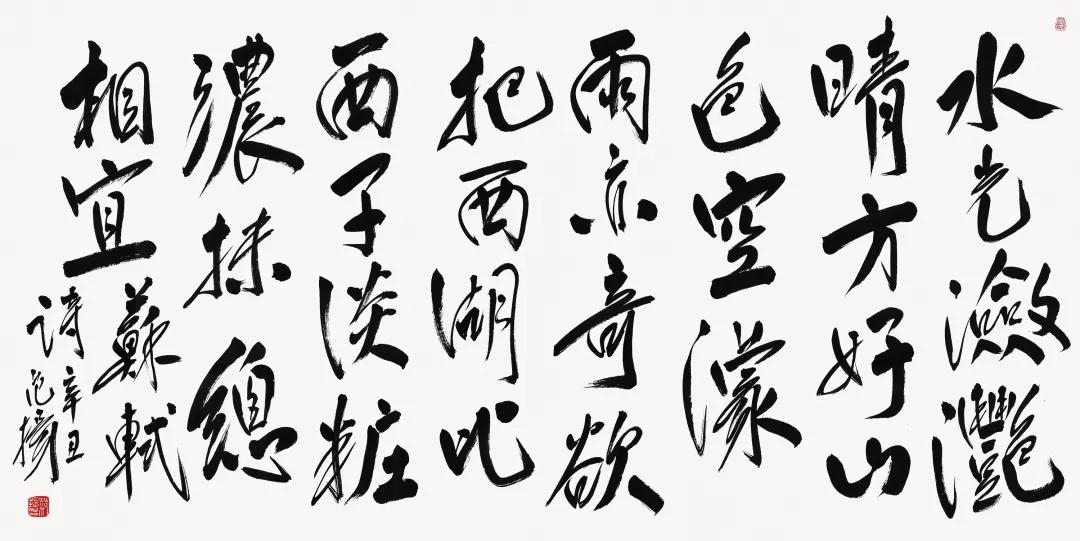 水光瀲灧
晴方好山
色空濛
雨亦奇欲
把西湖比
西子淡粧
濃抹總
相宜
蘇軾
詩
辛丑
范